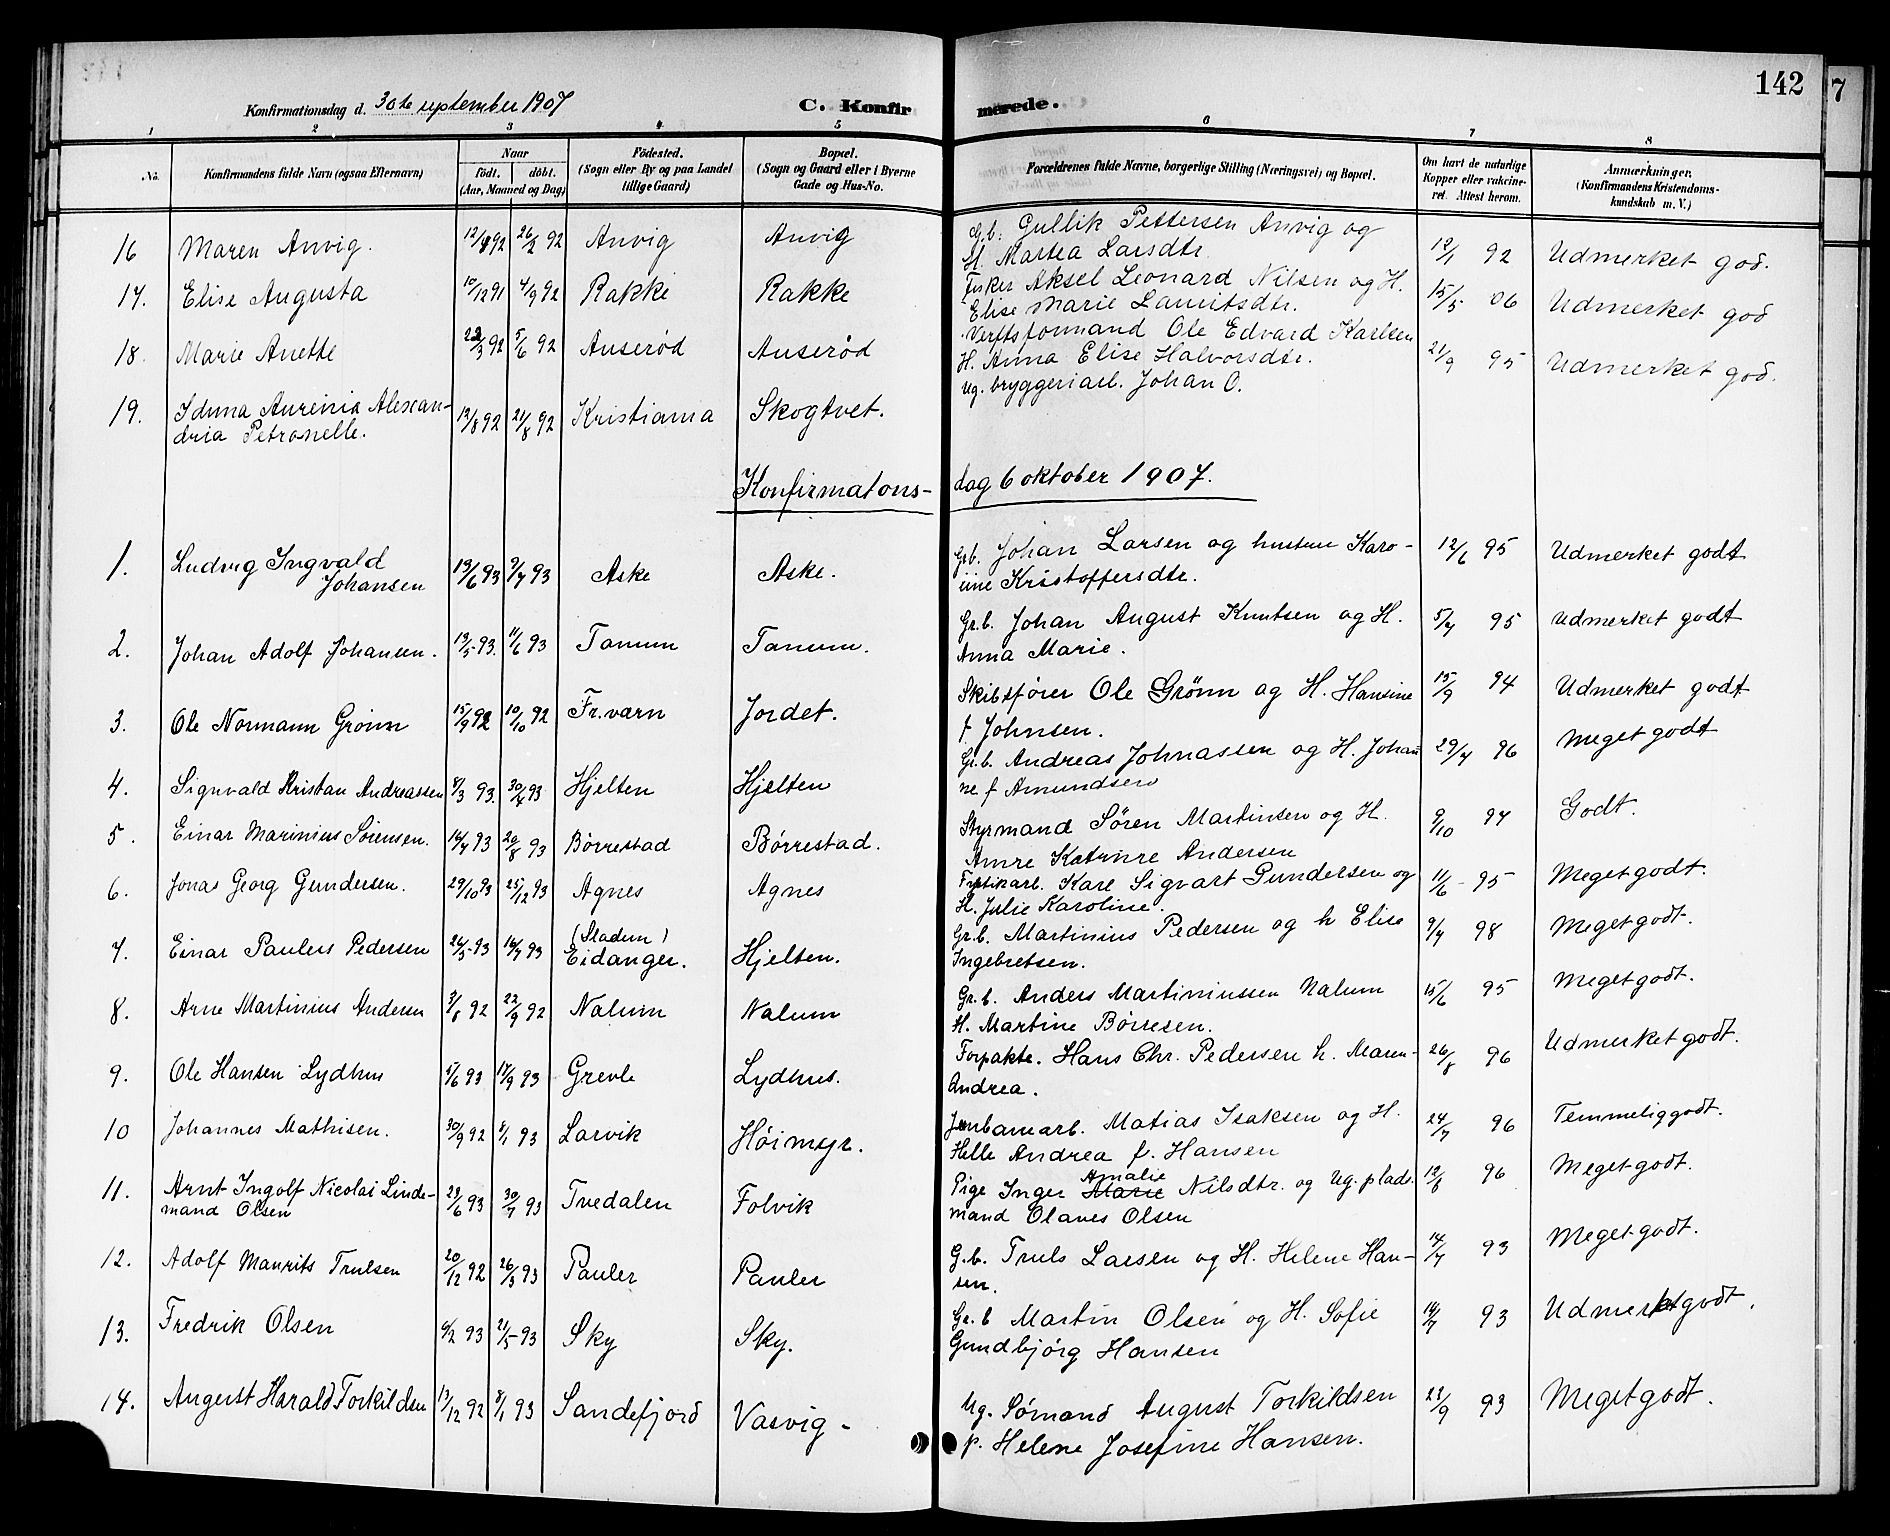 142
7
Konfirmationsdag d. 30te september 1907
C. Konfirmerede.
1 2 3 4 5 6 7 8
No. Konfirmandens fulde Navn (ogsaa Efternavn) Naar født. døbt. (Aar, Maaned og Dag) Fødested. (Sogn eller By og paa Landet tillige Gaard) Bopæl. (Sogn og Gaard eller i Byerne Gade og Hus-No. Forældrenes fulde Navne, borgerlige Stilling (Næringsvei) og Bopæl. Om havt de naturlige Kopper eller vakcineret. Attest herom. Anmærkninger. (Konfirmandens Kristendomskundskab m. V.)
16 Maren Anvig. 26/2 92 Anvig Anvig G.b. Gullik Pettersen Anvig og
H. Martea Larsdtr. 12/1 92 Udmerket god.
17. Elise Augusta 10/12 91 4/9 92 Rakke Rakke Fisker Aksel Leonard Nilsen og H.
Elise Marie Lauritsdtr. 15/5 06 Udmerket god
18. Marie Anette 22/3 92 5/6 92 Auserød Auserød Verftsformand Ole Edvard Karlsen
H. Anna Elise Halvorsdtr. 21/9 95 Udmerket god.
19. Iduna Aurinia Alexan-
dria Petronelle. 12/8 92 21/8 92 Kristiania Skogtvet. Ug. bryggeriarb. Johan O.
Konfirmatons- dag 6 oktober 1907.
1. Ludvig Ingvald
Johansen 13/6 93 9/7 93 Aske Aske. Gr.b. Johan Larsen og hustru Karo-
line Kristoffersdtr. 12/6 95 Udmerket godt
2. Johan Adolf Johansen. 13/5 93. 11/6 93 Tanum Tanum. Gr.b. Johan August Knutsen og H.
Anna Marie. 5/7 95 Udmerket godt
3. Ole Normann Grønn 15/9 92 10/10 92 Fr.værn Jordet. Skibsfører Ole Grønn og H. Hansine
f Johnsen. 15/9 94 Udmerket godt
4. Sigvald Kristian Andreassen 8/3 93. 30/4 93 Hjelten Hjelten Gr.b. Andreas Johnassen og H. Johan
ne f Amundsen 29/7 96 Meget godt
5. Einar Marinius Sørensen. 14/7 93 20/8 93 Børrestad Børrestad. Styrmand Søren Martinsen og H.
Anne Katrine Andersen 9/10 97 Godt.
6. Jonas Georg Gundersen. 29/10 93 25/12 93 Agnes Agnes Karl Sigvart Gundersen og
H. Julie Karoline. 11/6 95 Meget godt.
7. Einar Paulus Pedersen 26/5 93 16/7 93 (Stadum)
Eidanger. Hjelten. Gr.b. Martinius Pedersen og h Elise
Ingebretsen. 9/7 98 Meget godt.
8. Arne Martinius Andersen 92 22/9 92 Nalum Nalum Gr.b. Anders Martiniussen Nalum
H. Martine Børresen. 15/6 95 Meget godt.
9. Ole Hansen Lydhus 5/6 93 17/9 93 Grevle Lydhus. Forpakte. Hans Chr. Pedersen h. Maren-
Andrea. 26/8 96 Udmerket godt.
10 Johannes Mathisen. 30/9 92 8/1 93 Larvik Høimyr. Jernbanearb. Matias Isaksen og H.
Helle Andrea f. Hansen 24/7 96 Temmelig godt.
11. Arnt Ingolf Nicolai Linde-
mand Olsen 23/6 93 30/7 93 Tvedalen Folvik Pige Inger Marie Amalie Nilsdtr. og Ug. plads
mand Olaves Olsen 12/8 96 Meget godt.
12. Adolf Maurits Trulsen 20/12 92 26/3 93 Pauler Pauler G.b. Truls Larsen og H. Helene Han-
sen. 14/7 93 Meget godt.
13. Fredrik Olsen 93 21/5 93 Sky Sky. Gr.b Martin Olsen og H. Sofie
Gundbjørg Hansen 14/7 93 Udmerket godt.
14. August Harald Torkildsen 13/12 92 8/1 93 Sandefjord Vasvig - Ug. Sømand August Torkildsen
p. Helene Josefine Hansen. 23/9 93 Meget godt.